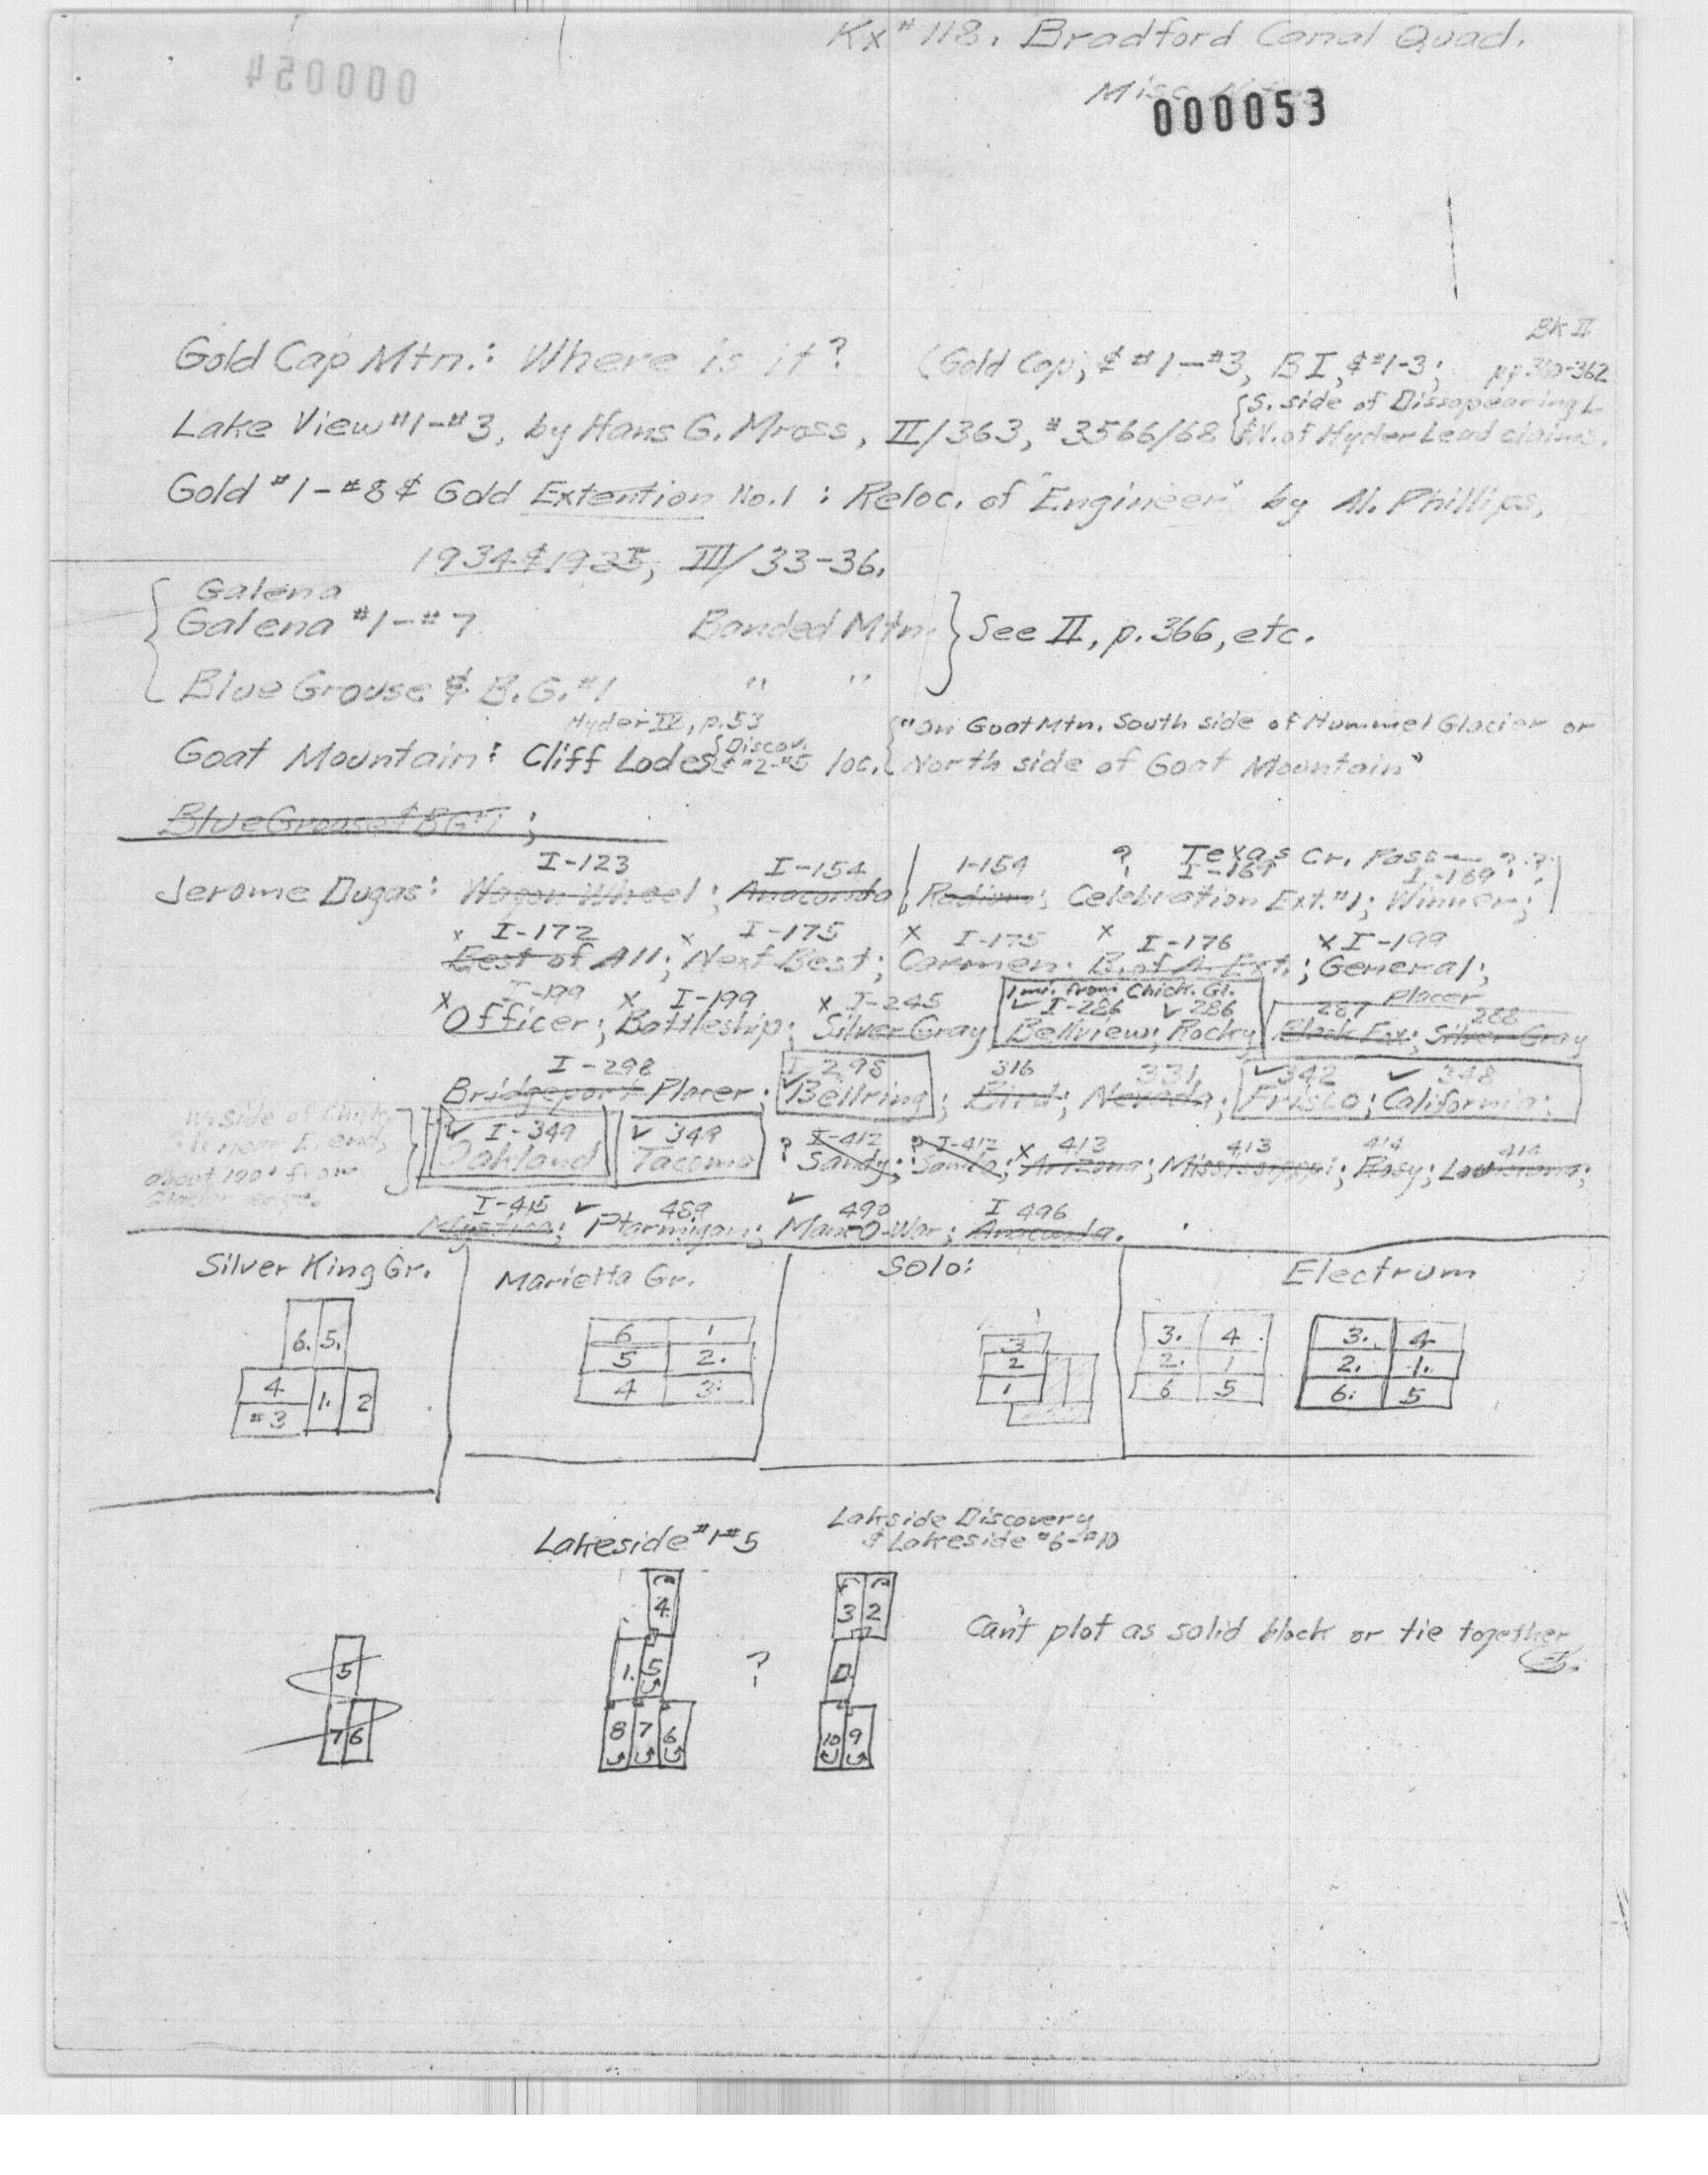 Kx #118. Bradford Canal Quad.
Misc.
000054
000053
BK II
Gold Cap Mtn.: Where is it? (Gold Cap, & #1-#3, B I, & #1-3; pp. 360-362
Lake View #1-#3, by Hans G. Mross, II/363, #3566/68 {S. side of Dissapearing L
N. of Hyder Lead claims.
Gold #1-#8 & Gold Extention No.1 : Reloc. of "Engineer" by N. Phillips,
1934 & 1935, III/33-36.
Galena
Galena #1-#7 Banded Mtn. } See II, p.366, etc.
Blue Grouse & B.G.#1 " "
Hyder IV, p.53
Goat Mountain: Cliff Lodes {Discov. & #2-#5 loc. {"On Goat Mtn. South side of Hummel Glacier or
North side of Goat Mountain"
Blue Grouse & BG#1 ;
I-123 I-154 I-154 ? Texas Cr. Pass — ? ?
I-169 I-169
Jerome Dugas: Wagon Wheel; Anaconda; Radium; Celebration Ext.#1; Winner;
x I-172 x I-175 x I-175 x I-176 x I-199
Best of All; Next Best; Carmen; B. of A. Ext.; General;
x I-199 x I-199 x I-245 1 mi. from Chick. Gl. ✓ I-286 ✓ 286 287 Placer 288
Officer; Battleship; Silver Gray Bellview; Rocky Black Fox; Silver Gray
I-298 ✓ I-298 316 331 ✓ 342 ✓ 348
Bridgeport Placer; Bellring; Bird; Nevada; Frisco; California;
W. side of Chick.
near E. end,
about 100' from
Glacier edge.
✓ I-349 ✓ 349 ? I-412 ? I-412 x 413 413 414 414
Oakland Tacoma Sandy; Arizona; Mississippi; Rosy; Louisiana;
I-415 ✓ 489 ✓ 490 I 496
Ptarmigan; Man-O-War; Anaconda.
Silver King Gr. Marietta Gr. Solo: Electrum
6. 5.
4 1. 2
#3
6 1
5 2.
4 3.
3
2
1
3. 4
2. 1
6 5
3. 4
2. 1.
6. 5
Lakeside #1-#5
Lakside Discovery
& Lakeside #6-#10
4
1. 5
8 7 6
?
3 2
D
10 9
5
7 6
Can't plot as solid block or tie together